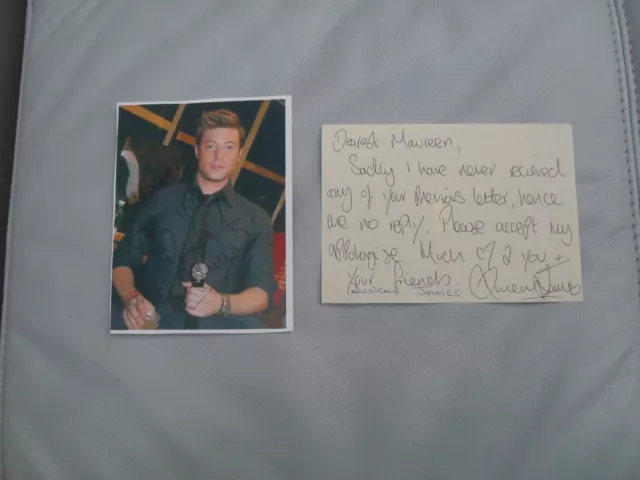 Dearest Maureen,
Sadly I have never recieved
any of your previous letter, hence
the no reply. Please accept my
appologize. Much ♡ 2 you +
your friends. Duncan James
DUNCAN JAMES